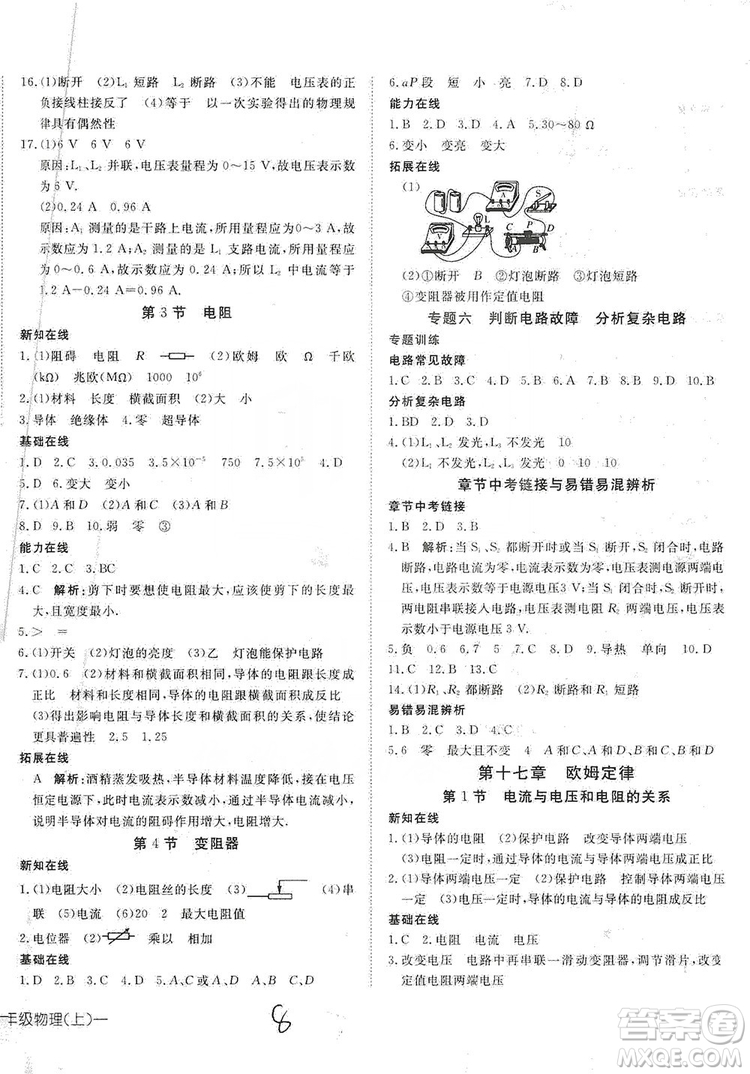 16.(1)断开　(2)L₁ 短路　L₂ 断路　(3)不能　电压表的正
负接线柱接反了　(4)等于　以一次实验得出的物理规
律具有偶然性
17.(1)6 V　6 V　6 V
原因:L₁、L₂ 并联,电压表量程为 0～15 V,故电压表示数
为 6 V.
(2)0.24 A　0.96 A
原因:A₁ 测量的是干路上电流,所选量程为 0～3 A,故
示数应为 1.2 A;A₂ 测量的是 L₁ 支路电流,所选量程为
0～0.6 A,故示数应为 0.24 A;所以 L₂ 中电流为
1.2 A－0.24 A＝0.96 A.
第 3 节　电阻
新知在线
1.(1)阻碍　电阻　R　(2)欧姆　欧　Ω　千欧
(kΩ)　兆欧(MΩ)　1000　10⁶
2.(1)材料　长度　横截面积　(2)大　小
3.导体　绝缘体　4.零　超导体
基础在线
1.D　2.C　3.0.035　3.5×10⁻⁵　750　7.5×10⁻⁴
4.D　5.D　6.变大　变小
7.(1)A 和 D　(2)A 和 C　(3)A 和 B
8.D　9.D　10.弱　零　③
能力在线
1.D　2.C　3.BC
4.C　解析:剪下时要想使电阻最大,应该使剪下的长度最
大,且宽度最小.
5.＞　＝
6.(1)开关　(2)灯泡的亮度　(3)乙　灯泡能保护电路
7.(1)0.6　(2)材料和横截面积相同,导体的电阻跟长度成
正比　材料和长度相同,导体的电阻跟横截面积成反比
(3)得出影响电阻与导体长度和横截面积的关系,使结论
更具普遍性　2.5　1.25
拓展在线
A　解析:酒精蒸发吸热,半导体材料温度降低,接在电压
恒定电源下,电流表示数减小,说明半导体材料温度降低
时,半导体对电流的阻碍作用增大,即电阻增大.
第 4 节　变阻器
新知在线
1.(1)电阻大小　(2)电阻丝的长度　(3)　(4)串
联　(5)电流　(6)20　2　最大电阻值
2.电位器　(2)　乘以　相加
基础在线
1.D　2.D　3.D　4.A、C(或 A、D)　A、B　5.A
年级物理(上)
8
6.aP 段　短　小　亮　7.D　8.D
能力在线
1.B　2.D　3.D　4.C　5.30～80 Ω
6.变小　变亮　变大
拓展在线
(1)
S
L
P
C
D
A
B
(2)①断开　B　②灯泡断路　③灯泡短路
④变阻器被用作定值电阻
专题六　判断电路故障　分析复杂电路
专题训练
电路常见故障
1.C　2.B　3.B　4.C　5.C　6.B　7.B
分析复杂电路
1.BD　2.D　3.D
4.(1)L₁、L₂ 发光,L₃ 不发光　10
(2)L₃ 发光,L₁、L₂ 不发光　10　10
章节中考链接与易错易混辨析
章节中考链接
1.B　2.A　3.D
4.B　解析:当 S₁、S₂ 都断开时或当 S₁ 闭合时,电路
断路,无电压;当 S₂ 闭合时,电压表测量电源两端电
压,等于 3 V;当 S₁、S₂ 都断开时,电路是通路,灯泡
两电阻串联接入电路,电压表测量电阻两端电压,
表示数小于电源电压 3 V.
5.负　6.B　7.B　8.D　9.导热　单向　10.
11.C　12.C　13.C
14.(1)R₁、R₂ 都断路　(2)R₂ 断路和 R₁ 短路
易错易混辨析
1.B　2.C　3.C　4.D
5.6　零　最大且不变　4　A 和 C　A 和 D
第十七章　欧姆定律
第 1 节　电流与电压和电阻的关系
新知在线
1.(1)导体的电阻　(2)保护电路　改变导体两端电压
(3)电阻一定时,通过导体的电流与导体两端电压成正比
2.(1)导体两端电压一定　(2)保护电路　控制导体两端电压
(3)电压一定时,通过导体的电流与导体的电阻成反比
基础在线
1.C　2.电阻　电流　电压
3.改变电压　电路中再串联一滑动变阻器,调节滑片,改变
定值电阻两端电压
答案圈
MXQE.COM